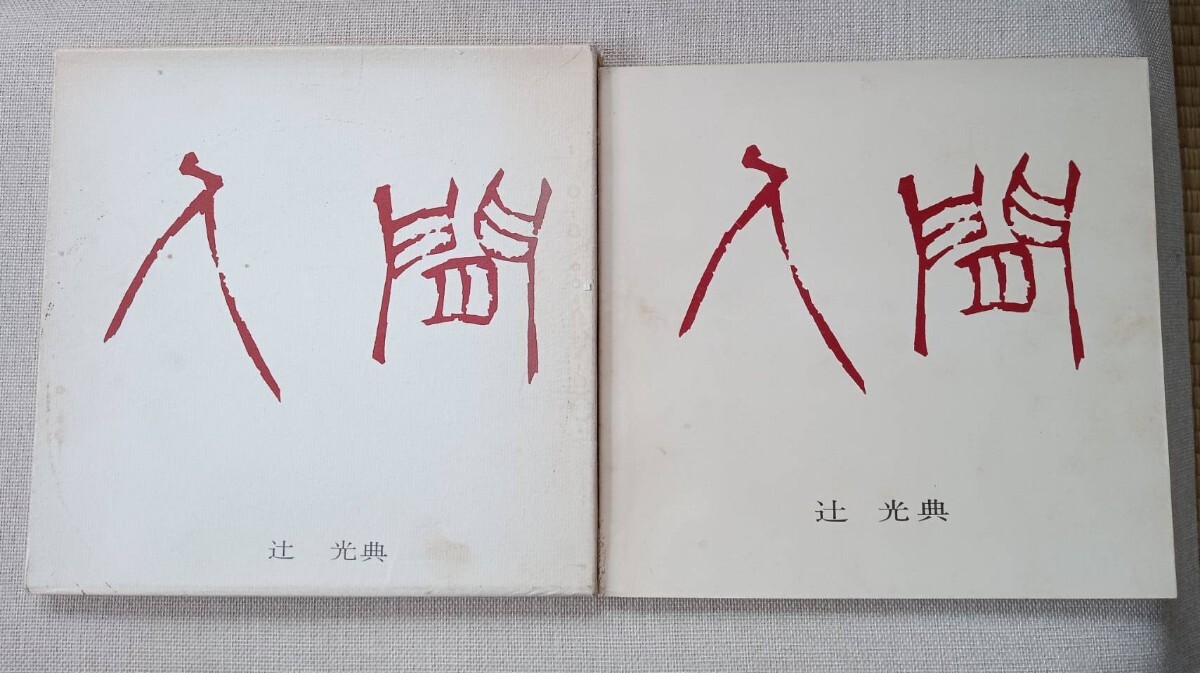 人間
辻 光典
人間
辻 光典